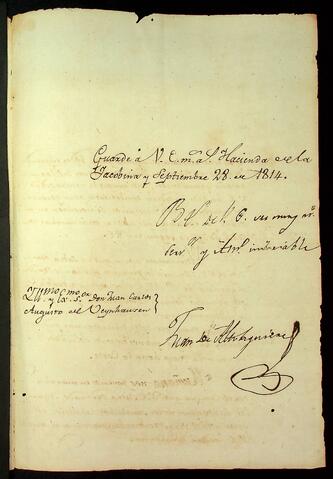 Guarde á V. E. m.s a.s Hacienda de la
Jacobina y Septiembre 28 de 1814.
B. L. M. de V. E. su muy
serv.r y Am.o
Ill.mo y Ex.mo S.or Don Juan Carlos
Augusto de Oeynhausen
Juan De